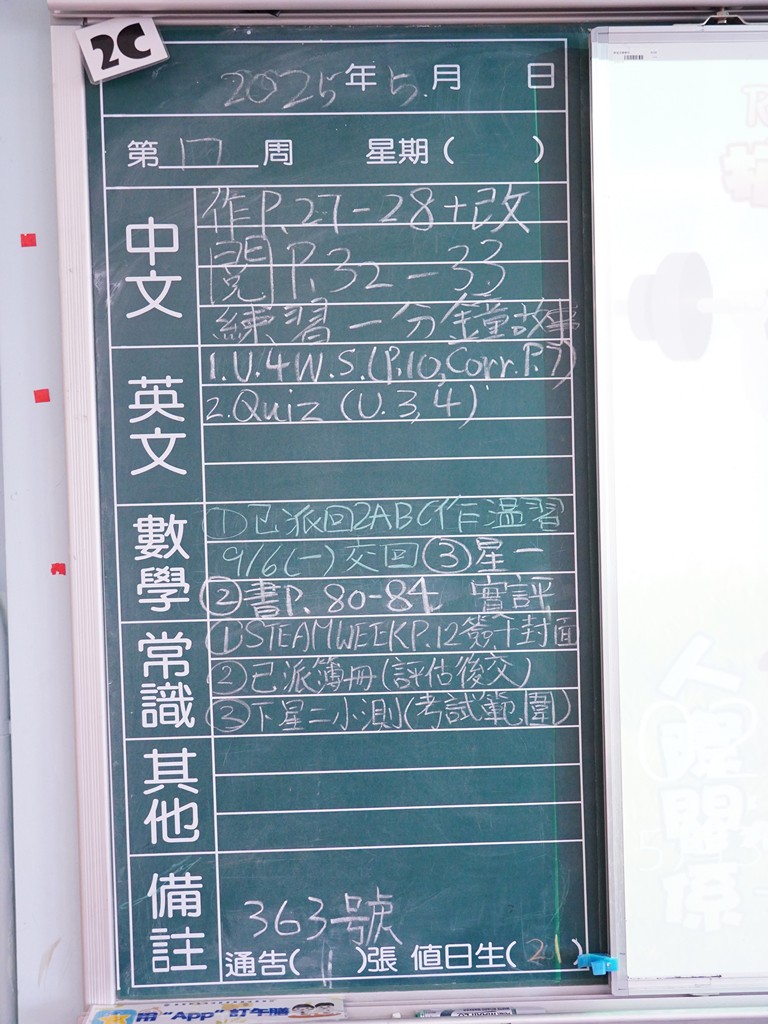 2C
2025年5月 日
第 17 周 星期( )
中文
作P.27-28+改
閱P.32-33
練習一分鐘故事
英文
1.U.4W.S.(P.10,Corr.P.7)
2.Quiz (U.3,4)
數學
①已派回2ABC作溫習
9/6(一)交回③星一
②書P.80-84 實評
常識
①STEAMWEEKP.12簽+封面
②已派簿冊(評估後交)
③下星二小測(考試範圍)
其他
備註
363號
通告(1)張 值日生(21)
用"App"訂午膳
人際關係